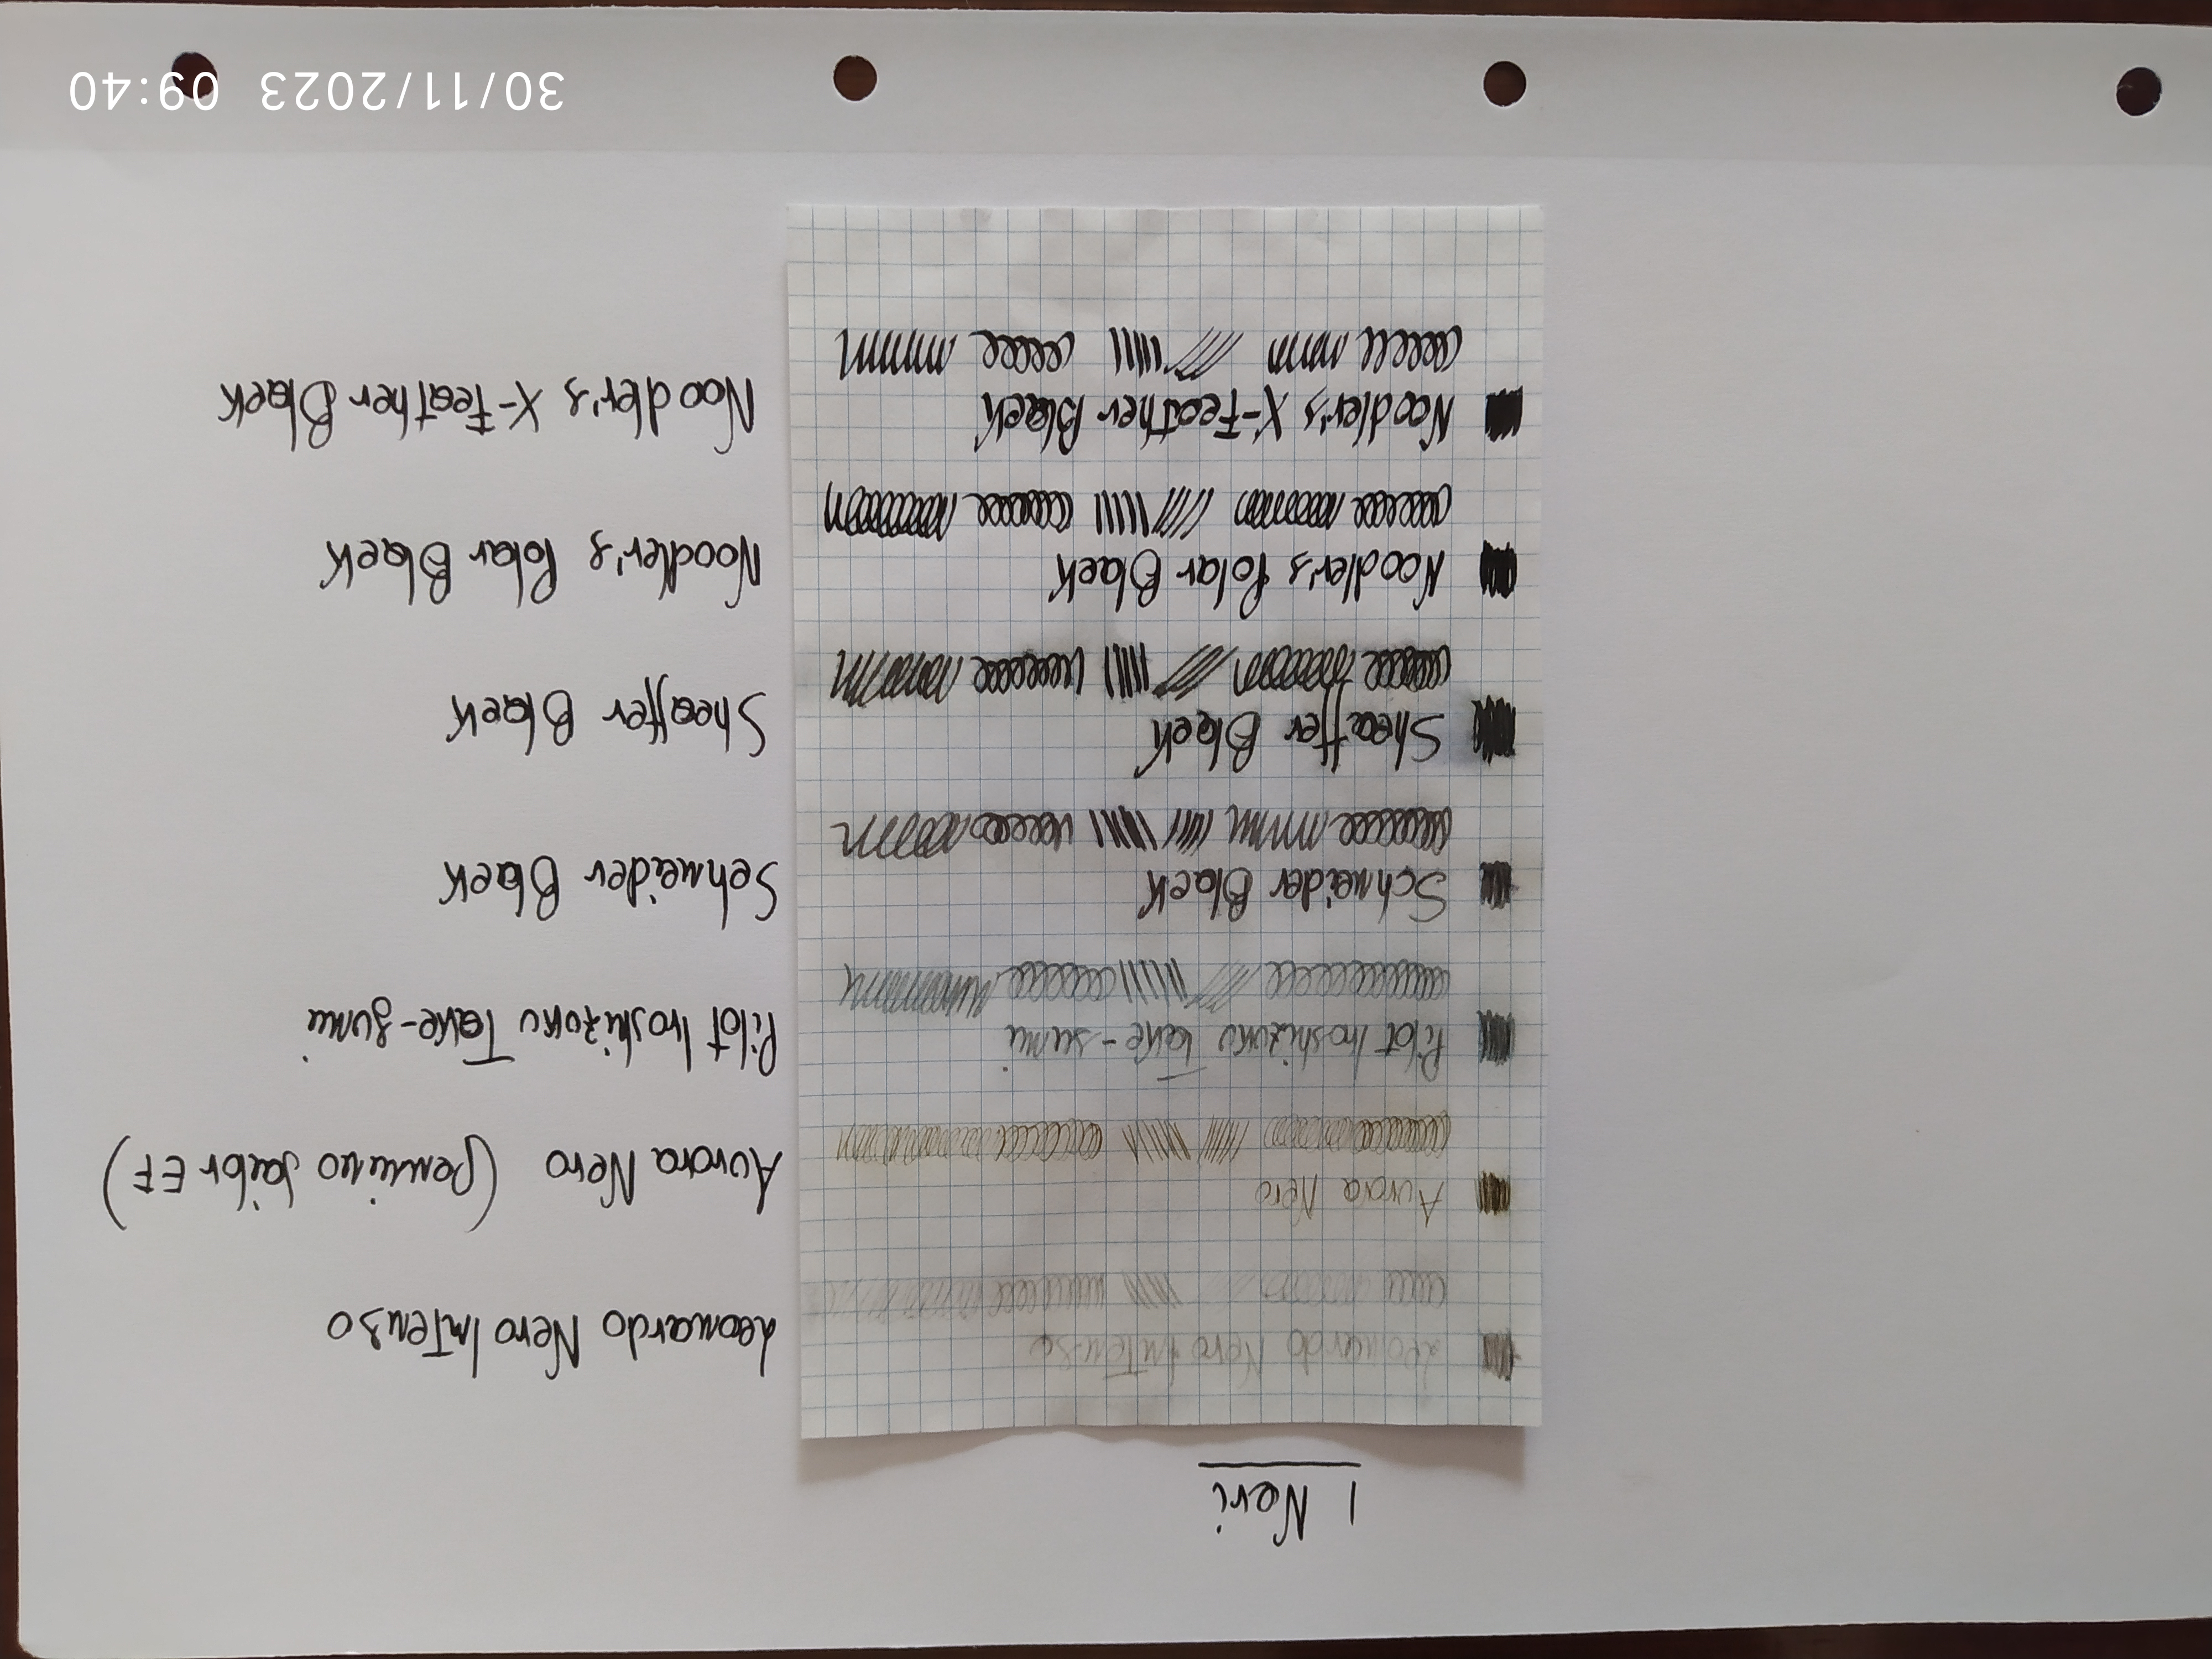 I Neri
Leonardo Nero Intenso
Leonardo Nero Intenso
Aurora Nero
Aurora Nero (Pennino Jaibr EF)
Pilot Iroshizuku Take-sumi
Pilot Iroshizuku Take-sumi
Schneider Black
Schneider Black
Sheaffer Black
Sheaffer Black
Noodler's Polar Black
Noodler's Polar Black
Noodler's X-Feather Black
Noodler's X-Feather Black
30/11/2023 09:40